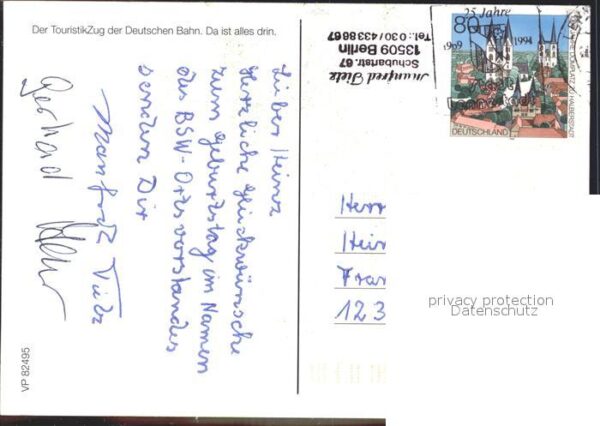 Der TouristikZug der Deutschen Bahn. Da ist alles drin.
Lieber Heinz
Herzliche Glückwünsche
zum Geburtstag im Namen
des BSW-Ortsvorstandes
senden Dir
Manfred Tietz
Gerhard
VP 82495
Manfred Tietz
Schubartstr. 67
13509 Berlin
Tel.: 030/4338667
25 Jahre
1969 1994
80
DEUTSCHLAND
Herr
Hein
Fran
123
privacy protection
Datenschutz